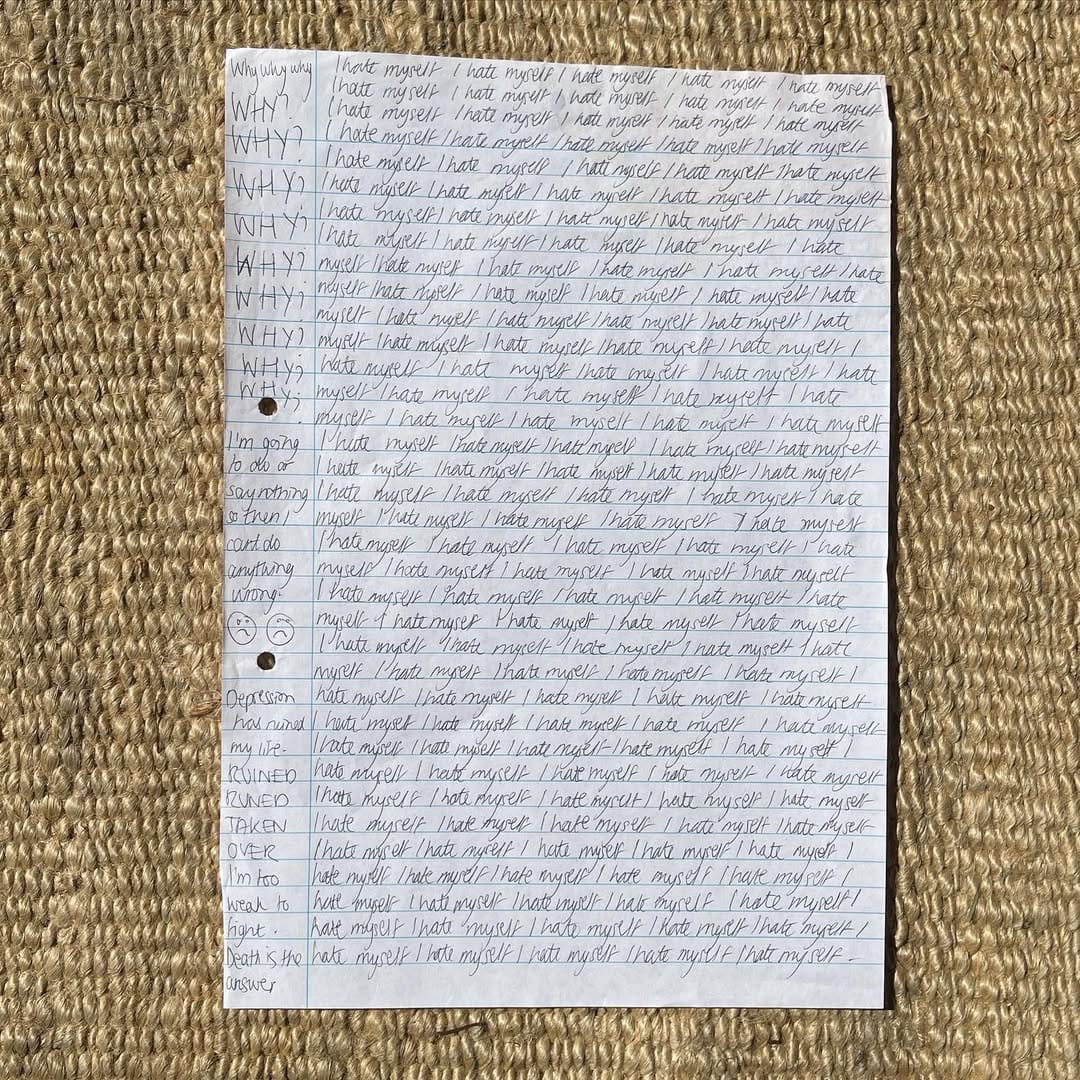 Why why why
WHY?
WHY?
WHY?
WHY?
WHY?
WHY?
WHY?
WHY?
WHY?
I'm going
to do or
say nothing
so then I
cant do
anything
wrong.
Depression
has ruined
my life.
RUINED
RUINED
TAKEN
OVER
I'm too
weak to
fight.
Death is the
answer
I hate myself I hate myself I hate myself I hate myself I hate myself
I hate myself I hate myself I hate myself I hate myself I hate myself
I hate myself I hate myself I hate myself I hate myself I hate myself
I hate myself I hate myself I hate myself I hate myself I hate myself
I hate myself I hate myself I hate myself I hate myself I hate myself
I hate myself I hate myself I hate myself I hate myself I hate myself
I hate myself I hate myself I hate myself I hate myself I hate myself
I hate myself I hate myself I hate myself I hate myself I hate
myself I hate myself I hate myself I hate myself I hate myself I hate
myself I hate myself I hate myself I hate myself I hate myself I hate
myself I hate myself I hate myself I hate myself I hate myself I hate
myself I hate myself I hate myself I hate myself I hate myself I
hate myself I hate myself I hate myself I hate myself I hate
myself I hate myself I hate myself I hate myself I hate
myself I hate myself I hate myself I hate myself I hate myself
I hate myself I hate myself I hate myself I hate myself I hate myself
I hate myself I hate myself I hate myself I hate myself I hate myself
I hate myself I hate myself I hate myself I hate myself I hate
myself I hate myself I hate myself I hate myself I hate myself
I hate myself I hate myself I hate myself I hate myself I hate
myself I hate myself I hate myself I hate myself I hate myself
I hate myself I hate myself I hate myself I hate myself I hate
myself I hate myself I hate myself I hate myself I hate myself
I hate myself I hate myself I hate myself I hate myself I hate
myself I hate myself I hate myself I hate myself I hate myself I
hate myself I hate myself I hate myself I hate myself I hate myself
I hate myself I hate myself I hate myself I hate myself I hate myself
I hate myself I hate myself I hate myself I hate myself I hate myself I
hate myself I hate myself I hate myself I hate myself I hate myself
I hate myself I hate myself I hate myself I hate myself I hate myself
I hate myself I hate myself I hate myself I hate myself I hate myself
I hate myself I hate myself I hate myself I hate myself I hate myself I
hate myself I hate myself I hate myself I hate myself I hate myself I
hate myself I hate myself I hate myself I hate myself I hate myself I
hate myself I hate myself I hate myself I hate myself I hate myself I
hate myself I hate myself I hate myself I hate myself I hate myself.